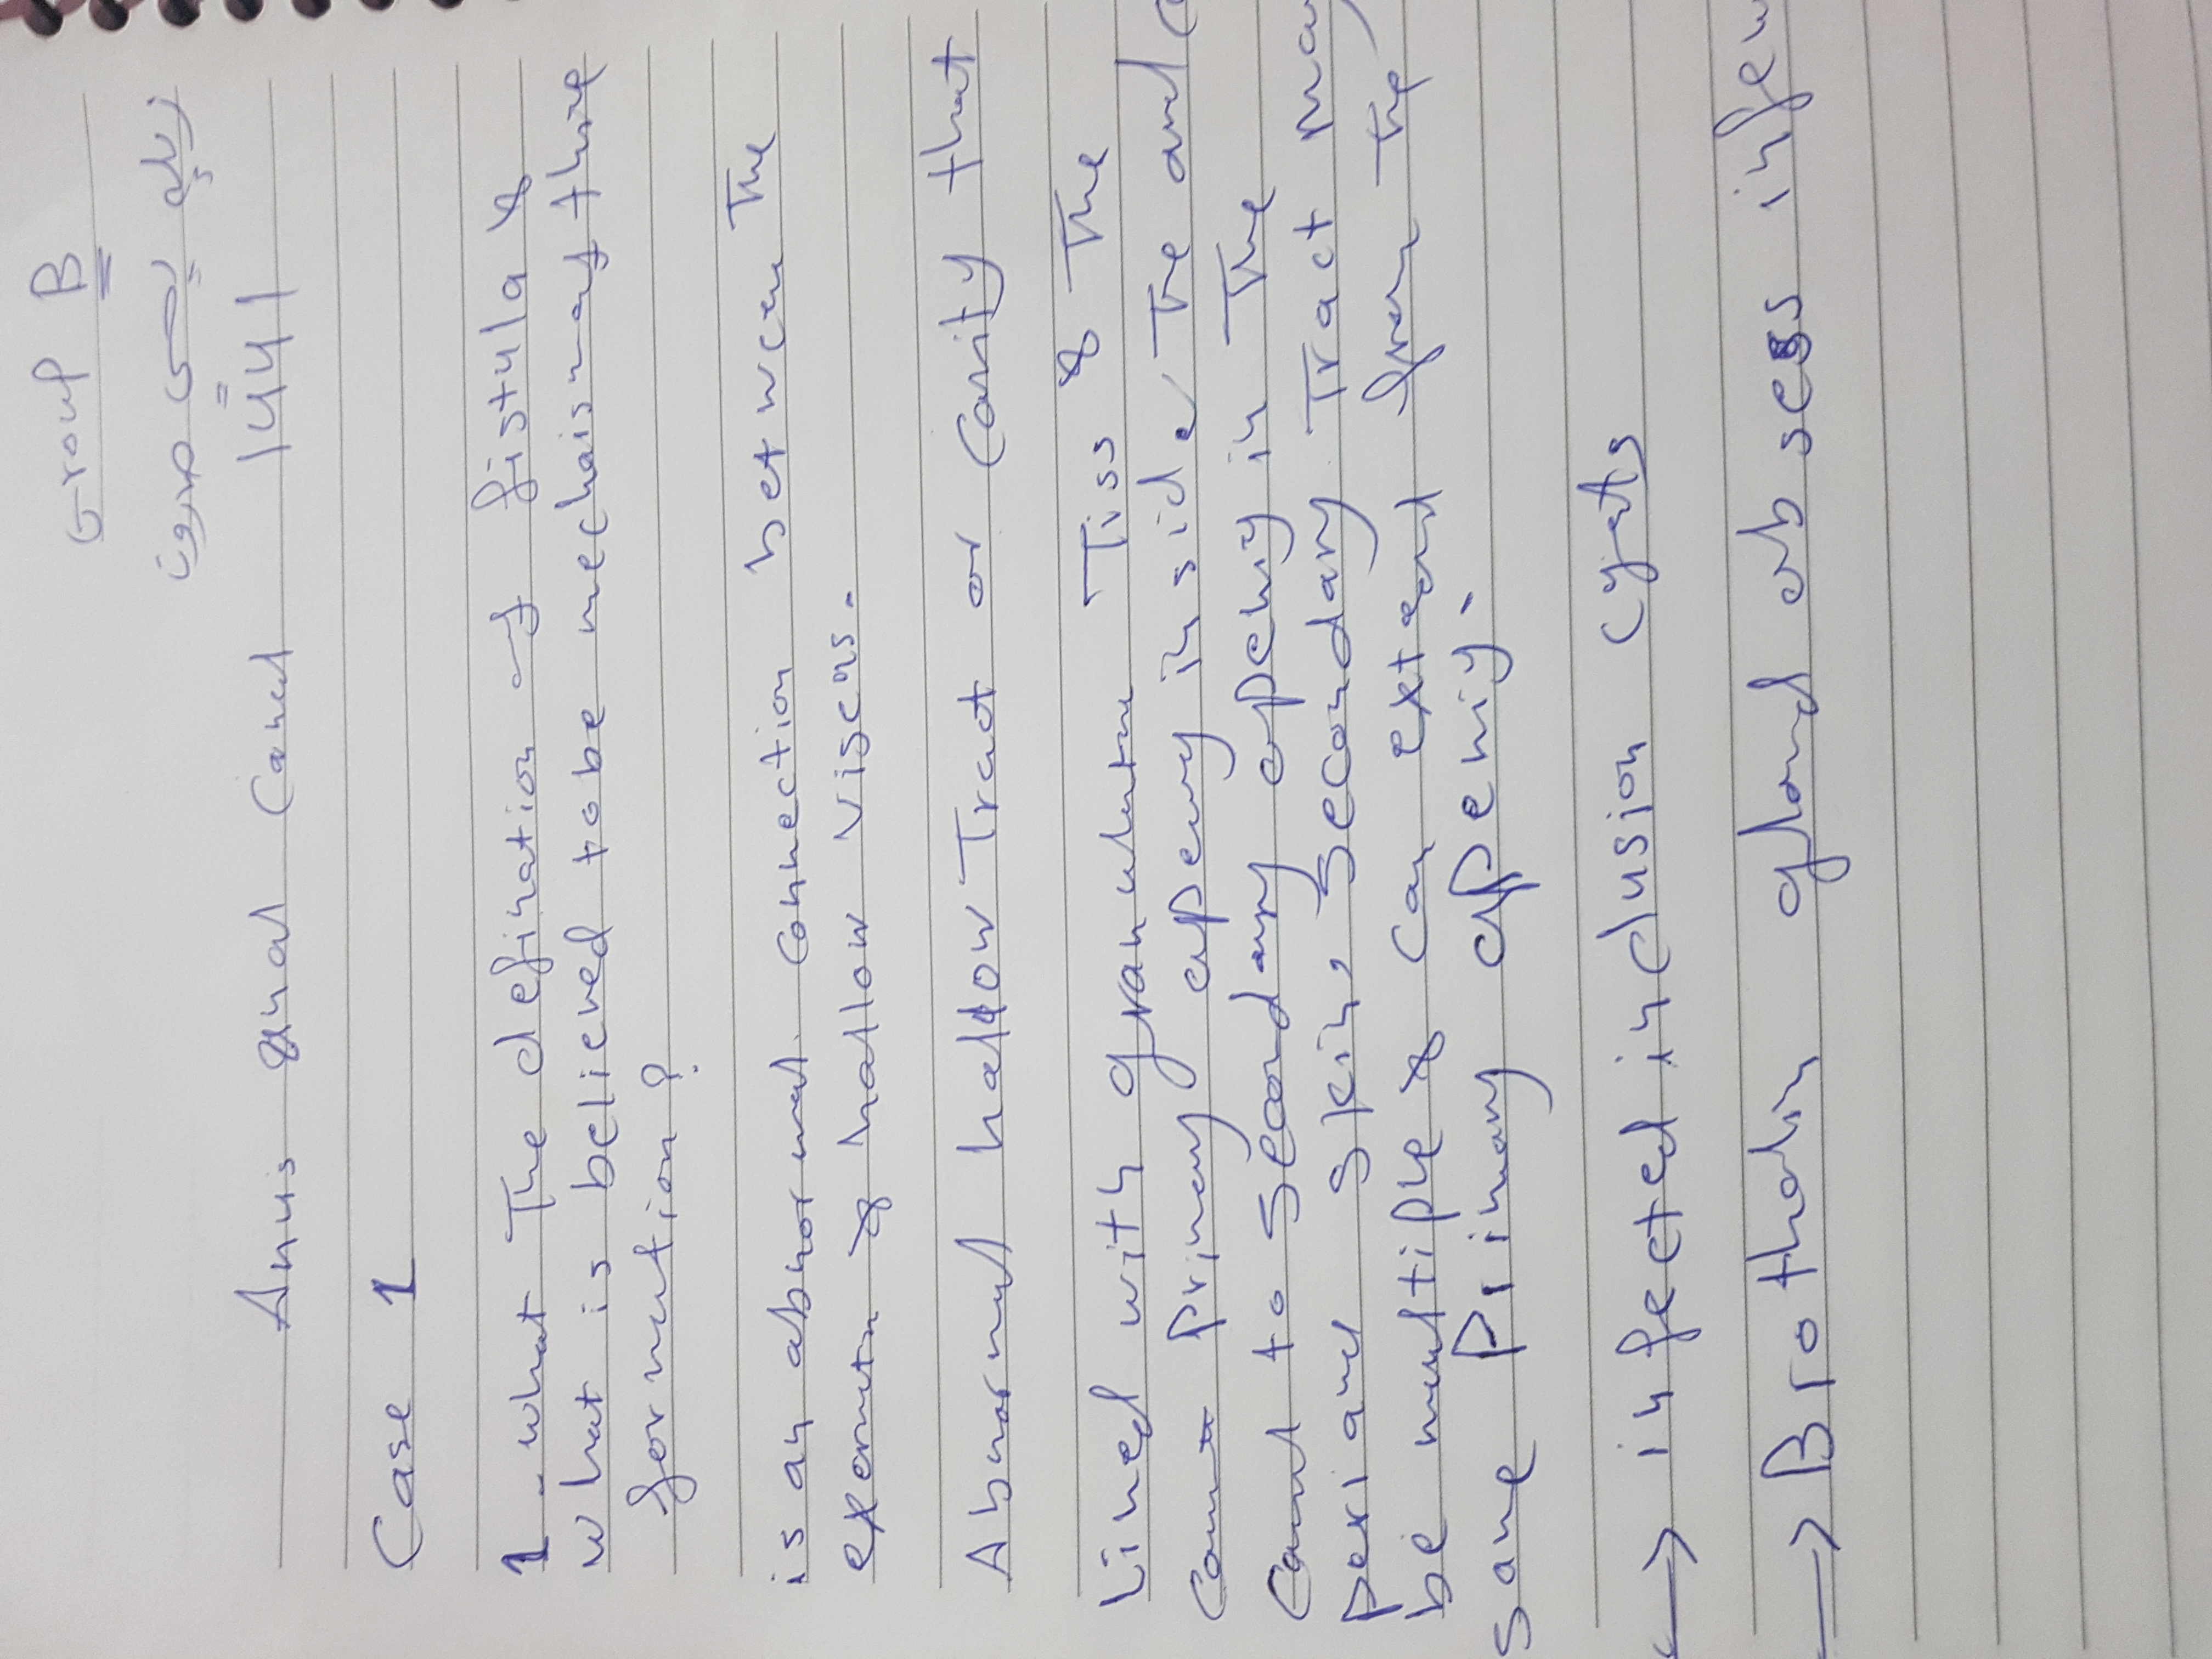 Group B
Anus anal Canal 1441
Case 1
1 - what The defination of fistula &
what is believed to be mechaism of there
formation?
is an abnormal connection between The
& hallow viscus.
Abnormal hallow Tract or Cavity that
Lined with granulation Tiss & The
primary opening inside The anal
Canal to secondary opening in The
perianal skin, secondary Tract may
be multiple & can extend from the
same Primary opening.
→ infected inclusion cysts
→ Brotholin gland absess